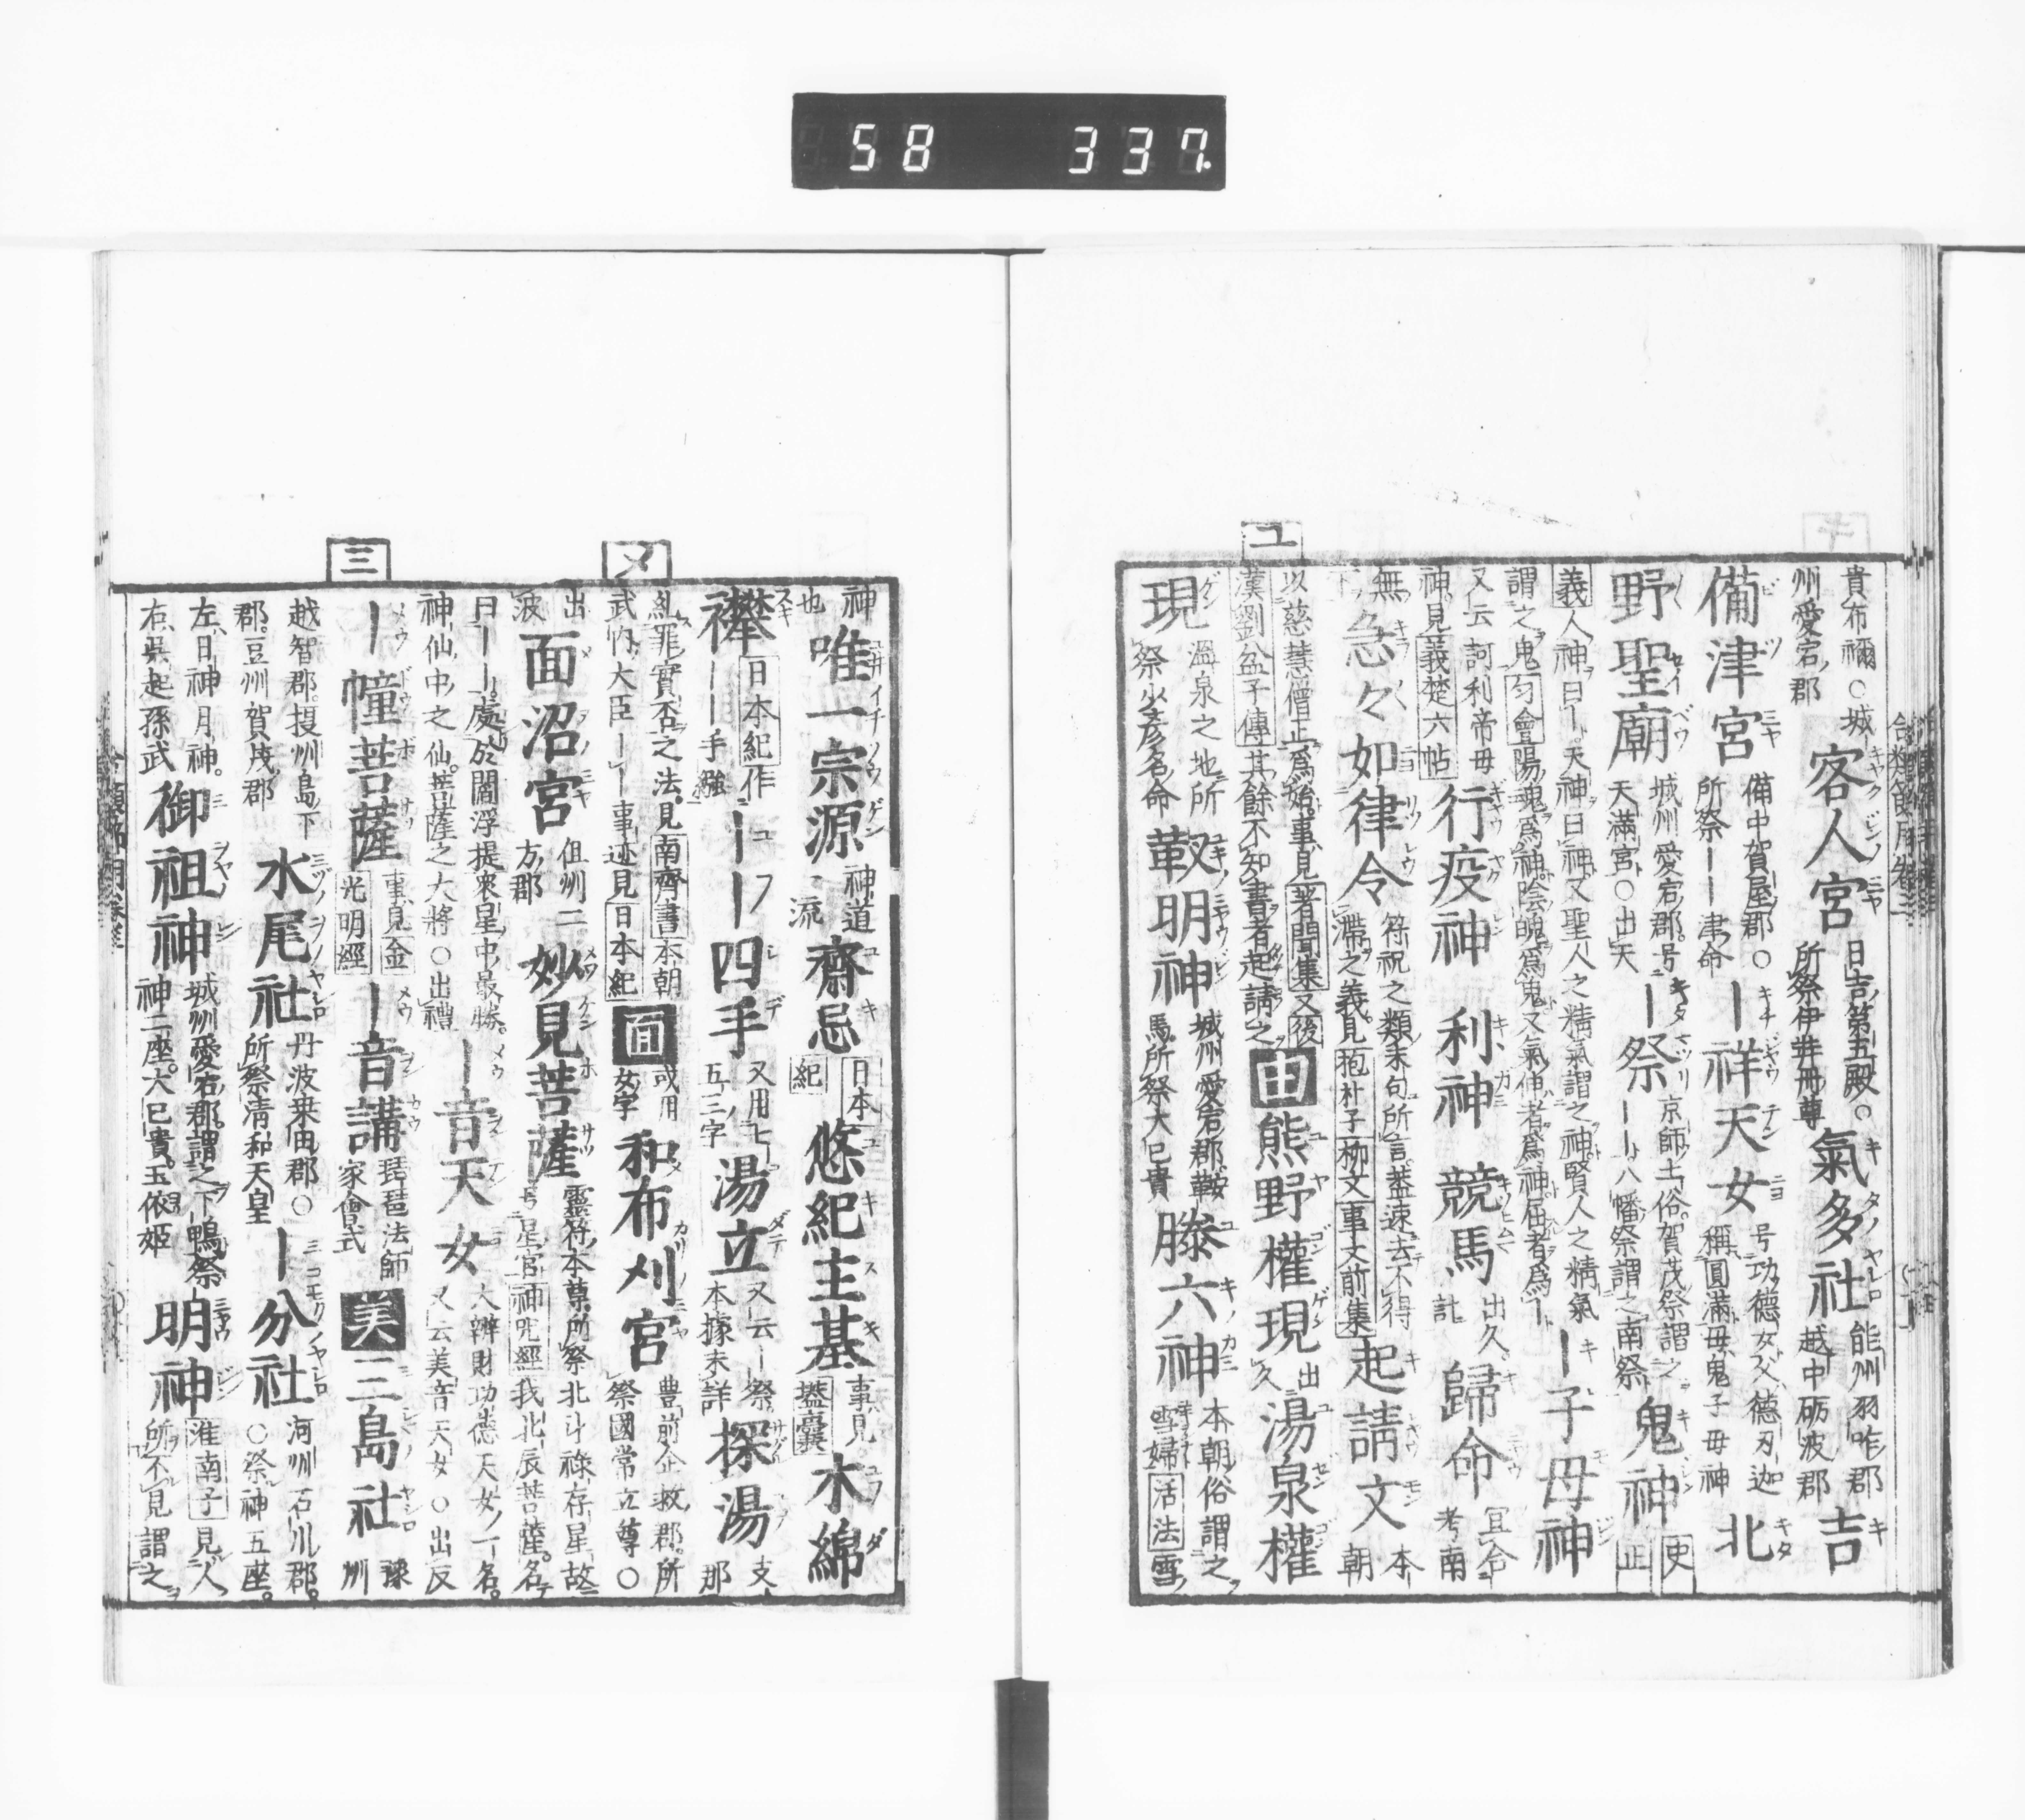 58 337
貴布禰○城州愛宕郡 客人宮 日吉第五殿○所祭伊弉冊尊 氣多社 能州羽咋郡越中砺波郡 吉
備津宮 備中賀屋郡○所祭ーー津命 ー祥天女 号功德女父德刃迦稱圓滿母鬼子母神 北
野聖廟 城州愛宕郡号天滿宮○出天 ー祭 京師土俗賀茂祭謂之ーート八幡祭謂之南祭 鬼神 史正
義人神曰ー天神曰神又聖人之精氣謂之神賢人之精氣謂之鬼匀會陽魂爲神陰魄爲鬼又氣伸者爲神屈者爲ー ー子母神
又云訶利帝母神見義楚六帖 行疫神 利神 競馬 出久計 歸命 冝合考南
無 急々如律令 符祝之類末句所言葢速去不得滯之義見抱朴子柳文事文前集 起請文 本朝
以慈慧僧正爲始事見著聞集又後漢劉盆子傳其餘不知書者起請之 由 熊野權現 出久 湯泉權
現 溫泉之地所祭少彥名命 靫明神 城州愛宕郡鞍馬所祭大巳貴 滕六神 本朝俗謂之雪婦活法雪
ユ
神也 唯一宗源 神道流 齋忌 日本紀 悠紀主基 事見壒囊 木綿
襷 日本紀作ーー手繦 ーー四手 又用七五三字 湯立 又云ー祭本據未詳 探湯 支那
糺罪實否之法見南齊書本朝武內大臣ーー事迹見日本紀 面 或用女字 和布刈宮 豊前企救郡所祭國常立尊○
出波 面沼宮 但州二方郡 妙見菩薩 靈符本尊所祭北斗祿存星故号星宮神咒經我北辰菩薩名
曰ーー處於閻浮提衆星中最勝神仙中之仙菩薩之大將○出禮 ー音天女 大辨財功德天女一名又云美音天女○出反
ー幢菩薩 事見金光明經 ー音講 琵琶法師家會式 美 三島社 豫州
越智郡摂州島下郡豆州賀茂郡 水尾社 丹波桒田郡○所祭淸和天皇 ー分社 河州石川郡○祭神五座
左日神月神右吳起孫武 御祖神 城州愛宕郡謂之下鴨祭神二座大巳貴玉依姫 明神 淮南子見人所不見謂之
メ
三